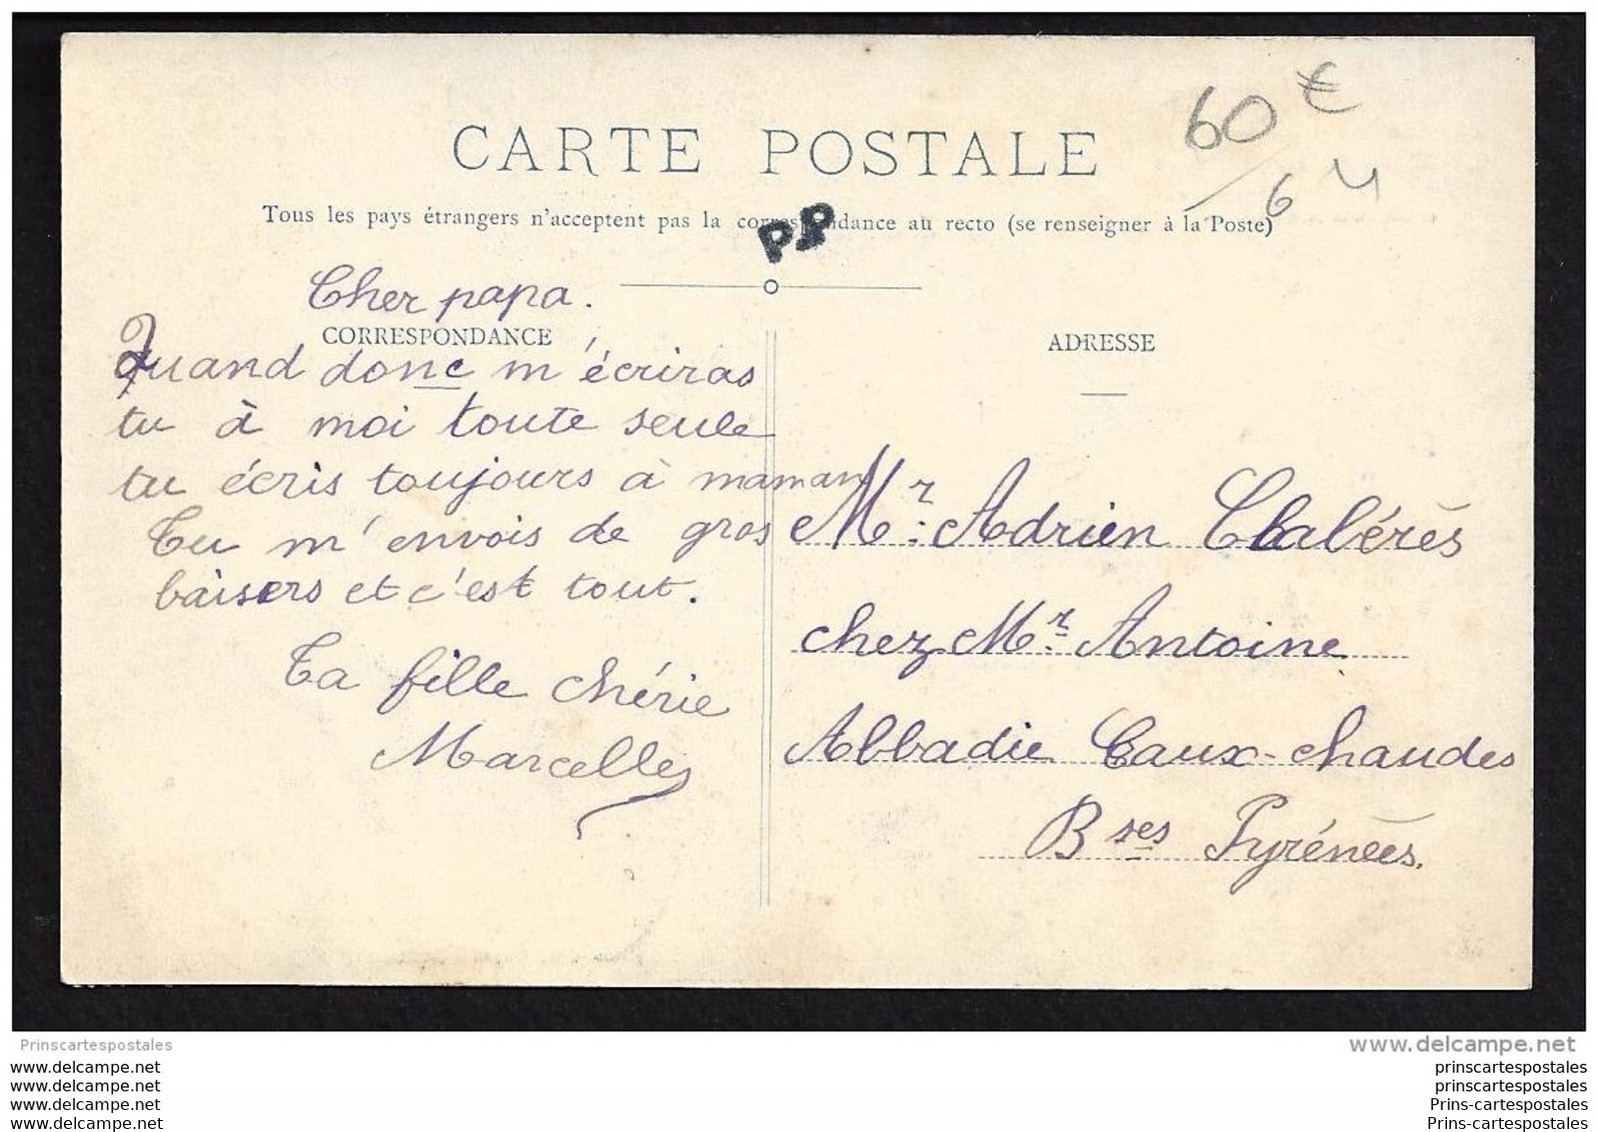 60 €
6 4
CARTE POSTALE
Tous les pays étrangers n'acceptent pas la correspondance au recto (se renseigner à la Poste)
PP
Cher papa.
CORRESPONDANCE
Quand donc m'écriras
tu à moi toute seule
tu écris toujours à maman
Tu m'envois de gros
baisers et c'est tout.
Ta fille chérie
Marcelle
ADRESSE
Mr. Adrien
chez Mr. Antoine
Abbadie Eaux-chaudes
Bses Pyrénées.
Prinscartespostales
www.delcampe.net
www.delcampe.net
www.delcampe.net
www.delcampe.net
www.delcampe.net
prinscartespostales
prinscartespostales
Prins-cartespostales
Prins-cartespostales